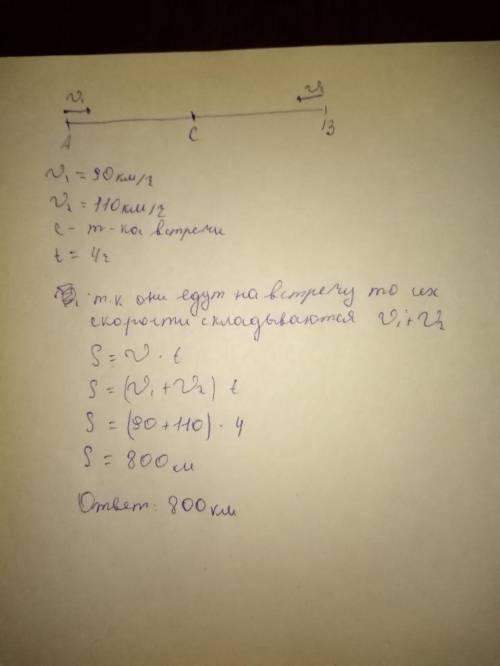 V₁ V₂
A C B
V₁ = 90 км/ч
V₂ = 110 км/ч
C - т-ка встречи
t = 4ч
т.к. они едут на встречу то их
скорости складываются V₁+V₂
S = V · t
S = (V₁ + V₂) t
S = (90 + 110) · 4
S = 800 м
Ответ: 800 км